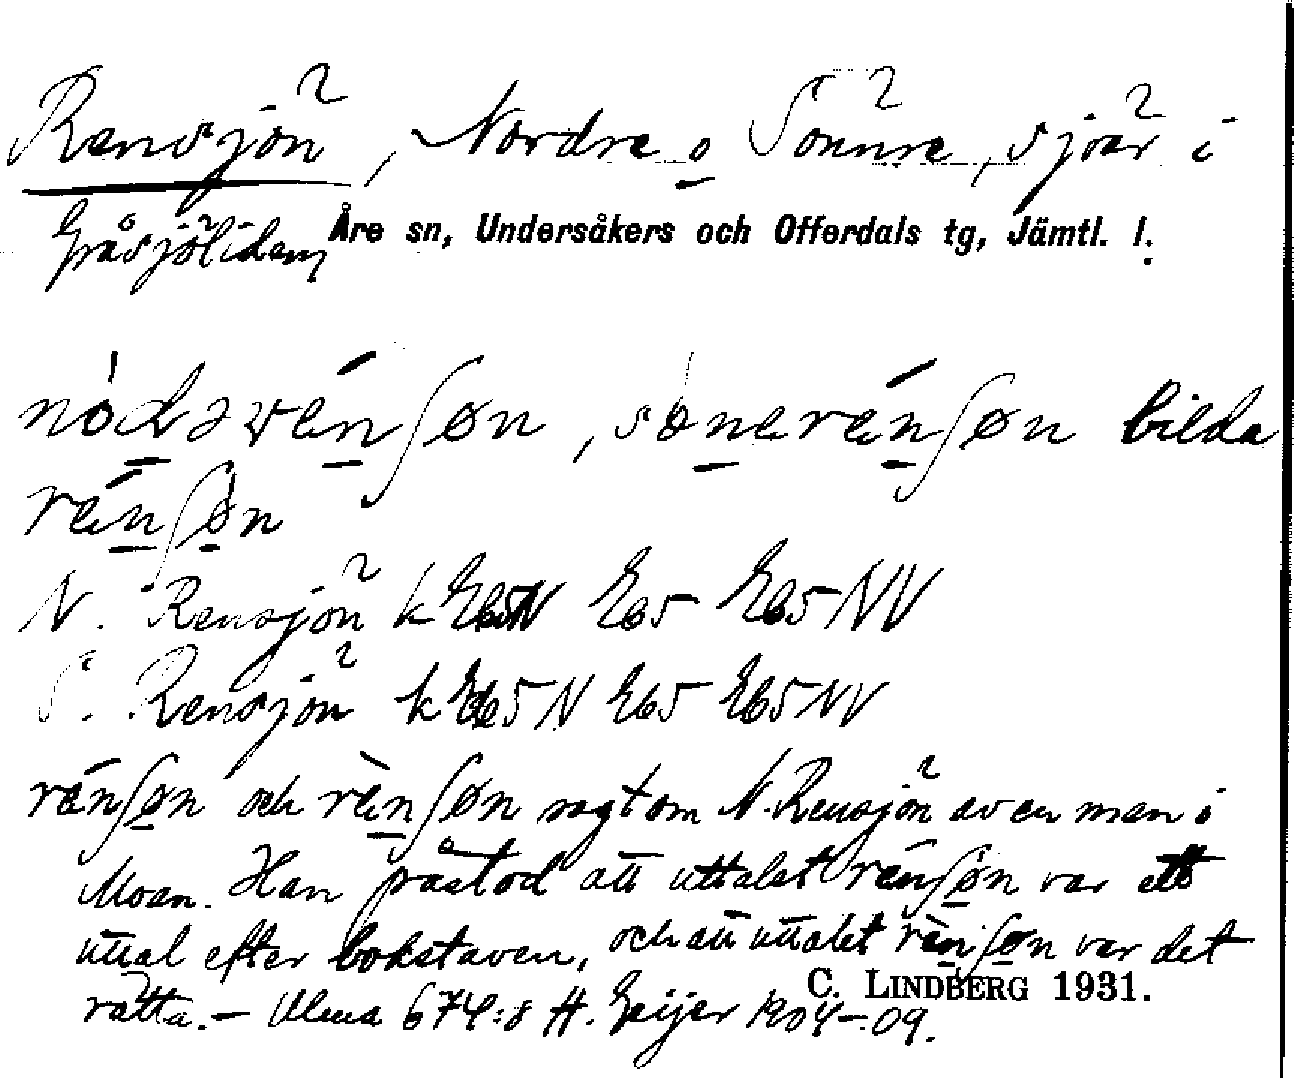 Rensjön, Nordre o Sönnre, sjöar i
Gråsjöliden, Åre sn, Undersåkers och Offerdals tg, Jämtl. l.
bilda
N. Rensjön k E65N E65 E65NV
S. Rensjön k E65N E65 E65NV
rénʃøn och rènʃøn sagt om N. Rensjön av en man i
Moan. Han påstod att uttalet rénʃøn var ett
uttal efter bokstaven, och att uttalet rènʃøn var det
rätta. – Ulma 674:8 H. Geijer 1904–09.
C. LINDBERG 1931.